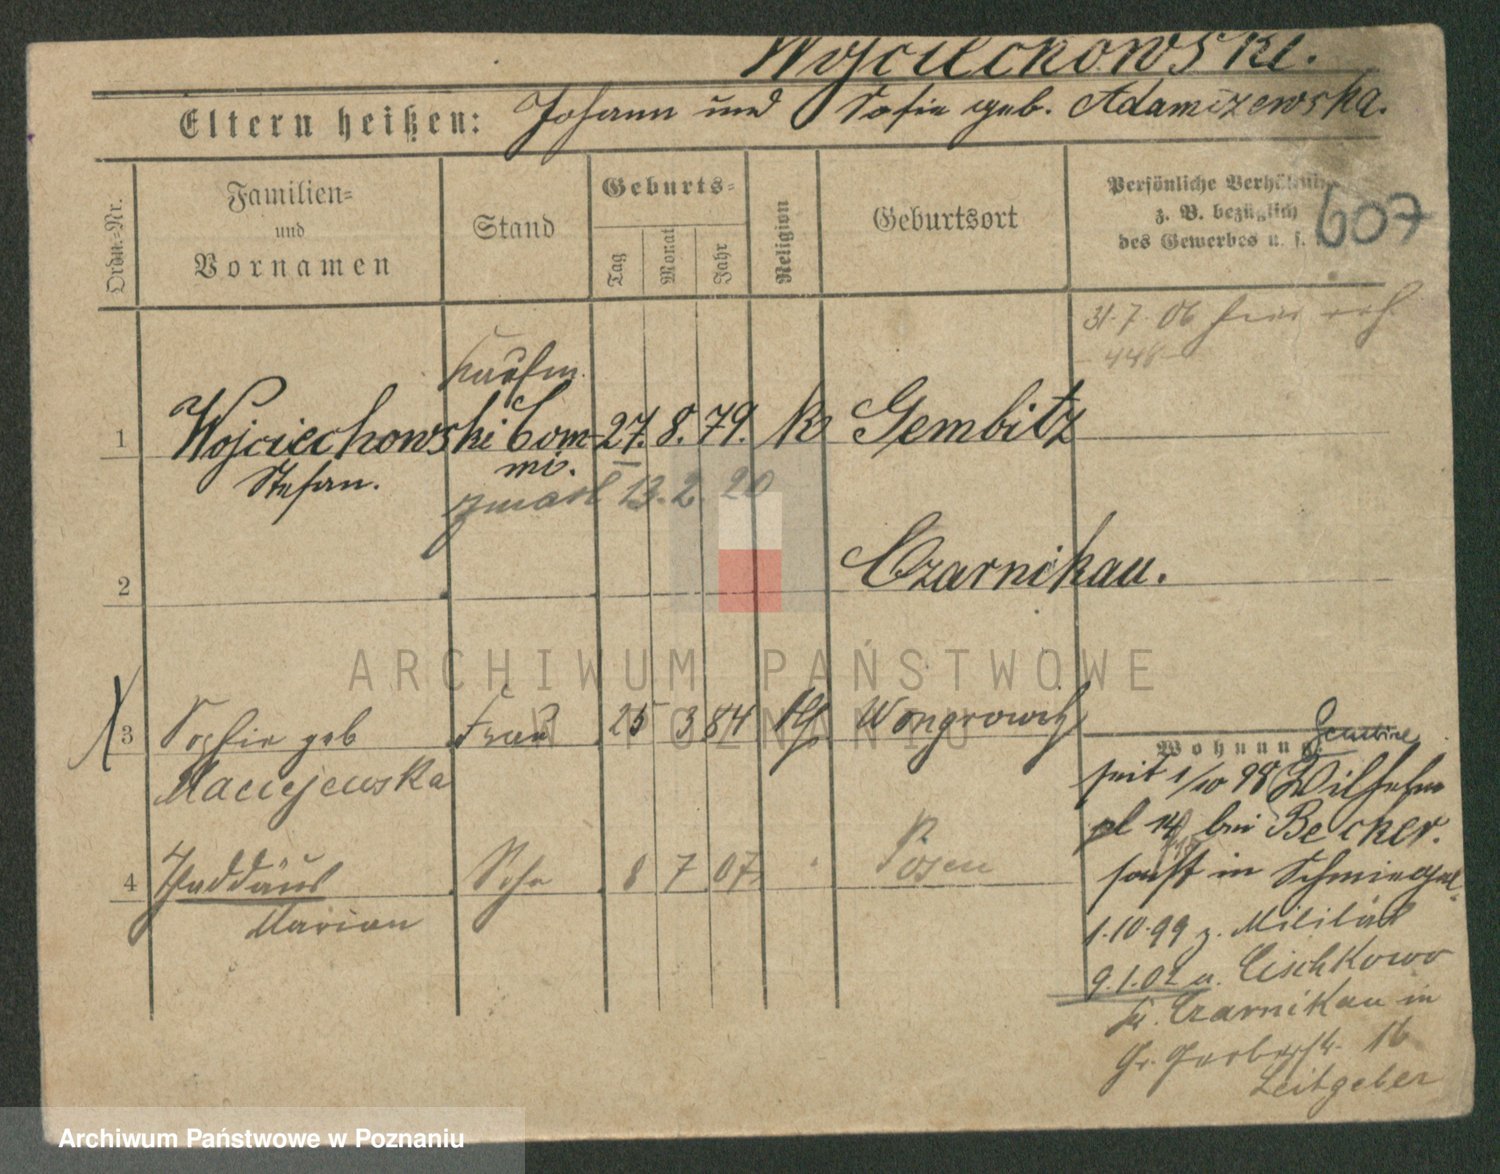 Wojciechowski.
Eltern heißen: Johann und Sofie geb. Adamczewska.
Ordn.-Nr.
Familien-
und
Vornamen
Stand
Geburts-
Tag
Monat
Jahr
Religion
Geburtsort
Persönliche Verhältnisse
z. B. bezüglich
des Gewerbes u. s.
607
31.7.06
448
Kaufm.
1 Wojciechowski Com- 27. 8. 79. k Gembitz
mis.
Stefan.
zmarł 13. 2. 20
2 Czarnikau.
3 Sophie geb Frau 25 3 84 Wongrowitz
Maciejewska
4 Thaddäus Sohn 8 7 07 Posen
Marian
Wohnung:
seit 1/10 98 Wilhelm
pl 14 bei Becker.
sonst in Schmiegel.
1.10.99 z. Militär
9.1.02 a. Cischkowo
Kr. Czarnikau in
Gr. Gerberstr. 16
Leitgeber
ARCHIWUM PAŃSTWOWE
W POZNANIU
Archiwum Państwowe w Poznaniu